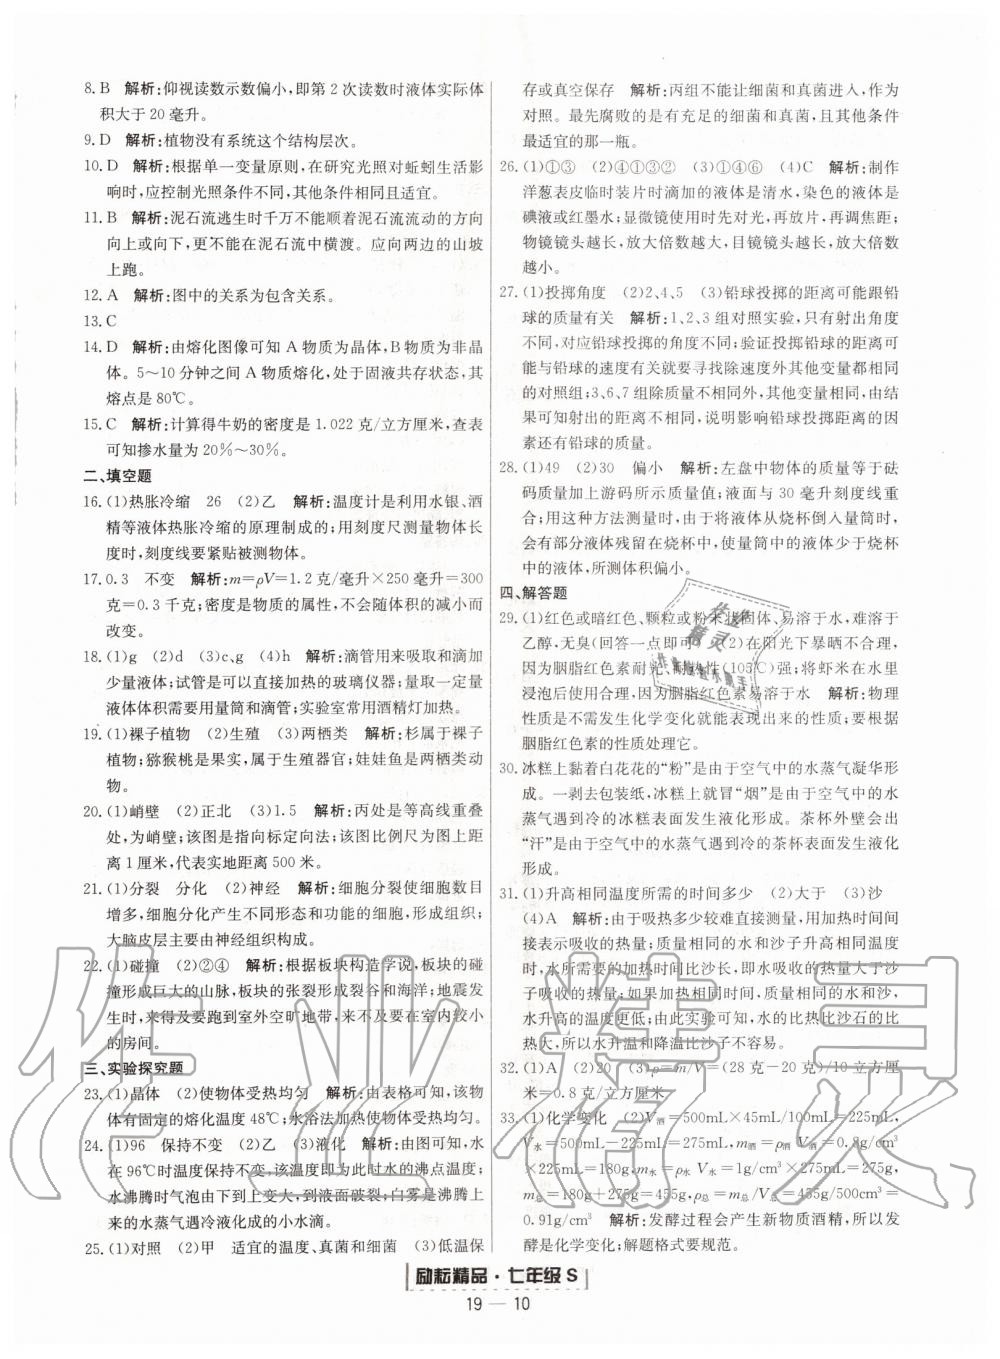 8. B　解析:仰视读数示数偏小,即第 2 次读数时液体实际体
积大于 20 毫升。
9. D　解析:植物没有系统这个结构层次。
10. D　解析:根据单一变量原则,在研究光照对蚯蚓生活影
响时,应控制光照条件不同,其他条件相同且适宜。
11. B　解析:泥石流逃生时千万不能顺着泥石流流动的方向
向上或向下,更不能在泥石流中横渡。应向两边的山坡
上跑。
12. A　解析:图中的关系为包含关系。
13. C
14. D　解析:由熔化图像可知 A 物质为晶体,B 物质为非晶
体。5～10 分钟之间 A 物质熔化,处于固液共存状态,其
熔点是 80℃。
15. C　解析:计算得牛奶的密度是 1.022 克/立方厘米,查表
可知掺水量为 20%～30%。
二、填空题
16. (1)热胀冷缩　26　(2)乙　解析:温度计是利用水银、酒
精等液体热胀冷缩的原理制成的;用刻度尺测量物体长
度时,刻度线要紧贴被测物体。
17. 0.3　不变　解析:m=ρV=1.2 克/毫升×250 毫升=300
克=0.3 千克;密度是物质的属性,不会随体积的减小而
改变。
18. (1)g　(2)d　(3)c、g　(4)h　解析:滴管用来吸取和滴加
少量液体;试管是可以直接加热的玻璃仪器;量取一定量
液体体积需要用量筒和滴管;实验室常用酒精灯加热。
19. (1)裸子植物　(2)生殖　(3)两栖类　解析:杉属于裸子
植物;猕猴桃是果实,属于生殖器官;娃娃鱼是两栖类动
物。
20. (1)峭壁　(2)正北　(3)1.5　解析:丙处是等高线重叠
处,为峭壁;该图是指向标定向法;该图比例尺为图上距
离 1 厘米,代表实地距离 500 米。
21. (1)分裂　分化　(2)神经　解析:细胞分裂使细胞数目
增多,细胞分化产生不同形态和功能的细胞,形成组织;
大脑皮层主要由神经组织构成。
22. (1)碰撞　(2)②④　解析:根据板块构造学说,板块的碰
撞形成巨大的山脉,板块的张裂形成裂谷和海洋;地震发
生时,来得及要跑到室外空旷地带,来不及要在室内较小
的房间。
三、实验探究题
23. (1)晶体　(2)使物体受热均匀　解析:由表格可知,该物
体有固定的熔化温度 48℃;水浴法加热使物体受热均匀。
24. (1)96　保持不变　(2)乙　(3)液化　解析:由图可知,水
在 96℃时温度保持不变,该温度即为此时水的沸点温度;
水沸腾时气泡由下到上变大,到液面破裂;白雾是沸腾上
来的水蒸气遇冷液化成的小水滴。
25. (1)对照　(2)甲　适宜的温度、真菌和细菌　(3)低温保
存或真空保存　解析:丙组不能让细菌和真菌进入,作为
对照。最先腐败的是有充足的细菌和真菌,且其他条件
最适宜的那一瓶。
26. (1)①③　(2)④①③②　(3)①④⑥　(4)C　解析:制作
洋葱表皮临时装片时滴加的液体是清水,染色的液体是
碘液或红墨水;显微镜使用时先对光,再放片,再调焦距;
物镜镜头越长,放大倍数越大,目镜镜头越长,放大倍数
越小。
27. (1)投掷角度　(2)2、4、5　(3)铅球投掷的距离可能跟铅
球的质量有关　解析:1、2、3 组对照实验,只有出射角度
不同,对应铅球投掷的角度不同;验证投掷铅球的距离可
能与铅球的速度有关就要找除速度外其他变量都相同
的对照组;3、6、7 组除质量不相同外,其他变量相同,由结
果可知射出的距离不相同,说明影响铅球投掷距离的因
素还有铅球的质量。
28. (1)49　(2)30　偏小　解析:左盘中物体的质量等于砝
码质量加上游码所示质量值;液面与 30 毫升刻度线重
合;用这种方法测量时,由于将液体从烧杯倒入量筒时,
会有部分液体残留在烧杯中,使量筒中的液体少于烧杯
中的液体,所测体积偏小。
四、解答题
29. (1)红色或暗红色、颗粒或粉末状固体、易溶于水,难溶于
乙醇,无臭(回答一点即可)　(2)在阳光下暴晒不合理,
因为胭脂红色素耐光、耐热性(105℃)强;将虾米在水里
浸泡后使用合理,因为胭脂红色素易溶于水　解析:物理
性质是不需发生化学变化就能表现出来的性质;要根据
胭脂红色素的性质处理它。
30. 冰糕上黏着白花花的“粉”是由于空气中的水蒸气凝华形
成。一剥去包装纸,冰糕上就冒“烟”是由于空气中的水
蒸气遇到冷的冰糕表面发生液化形成。茶杯外壁会出
“汗”是由于空气中的水蒸气遇到冷的茶杯表面发生液化
形成。
31. (1)升高相同温度所需的时间多少　(2)大于　(3)沙
(4)A　解析:由于吸热多少较难直接测量,用加热时间间
接表示吸收的热量;质量相同的水和沙子升高相同温度
时,水所需要的加热时间比沙长,即水吸收的热量大于沙
子吸收的热量;如果加热相同时间,质量相同的水和沙,
水升高的温度更低;由此实验可知,水的比热比沙石的比
热大,所以水升温和降温比沙子不容易。
32. (1)A　(2)20　(3)ρ=m/V=(28 克-20 克)/10 立方厘
米=0.8 克/立方厘米
33. (1)化学变化　(2)V酒=500mL×45mL/100mL=225mL,
V水=500mL-225mL=275mL,m酒=ρ酒V酒=0.8g/cm³
×225mL=180g,m水=ρ水V水=1g/cm³×275mL=275g,
m总=180g+275g=455g,ρ总=m总/V总=455g/500cm³=
0.91g/cm³　解析:发酵过程会产生新物质酒精,所以发
酵是化学变化;解题格式要规范。
励耘精品·七年级 S
19 — 10
作业精灵
作业精灵